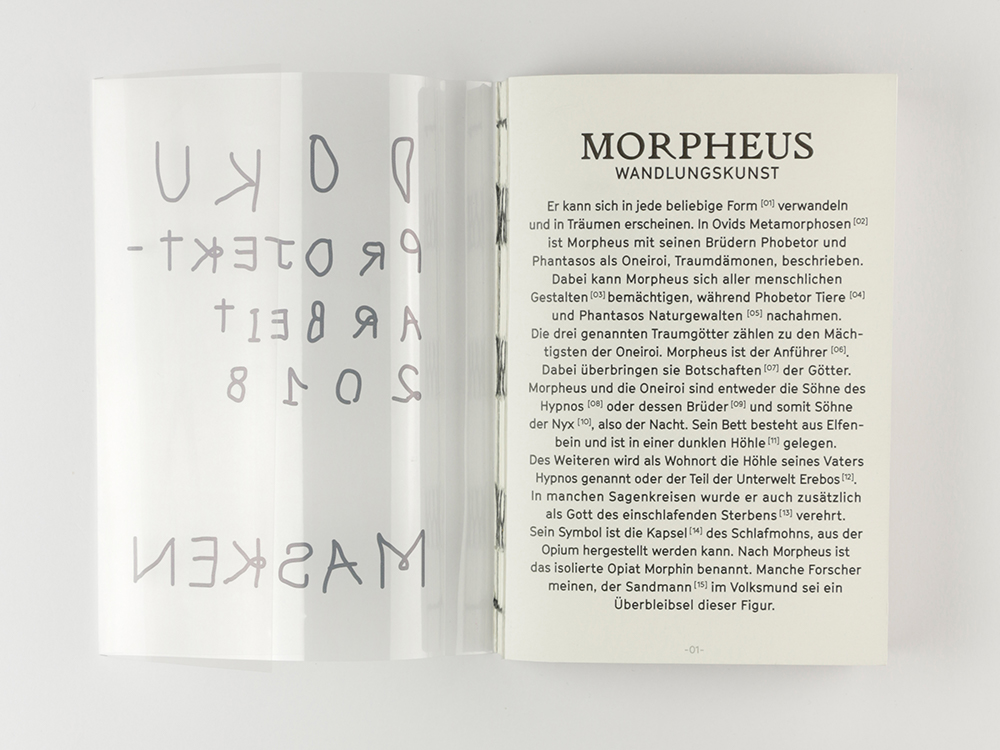 DOKU
PROJEKT-
ARBEIT
2018
MASKEN
MORPHEUS
WANDLUNGSKUNST
Er kann sich in jede beliebige Form [01] verwandeln
und in Träumen erscheinen. In Ovids Metamorphosen [02]
ist Morpheus mit seinen Brüdern Phobetor und
Phantasos als Oneiroi, Traumdämonen, beschrieben.
Dabei kann Morpheus sich aller menschlichen
Gestalten [03] bemächtigen, während Phobetor Tiere [04]
und Phantasos Naturgewalten [05] nachahmen.
Die drei genannten Traumgötter zählen zu den Mäch-
tigsten der Oneiroi. Morpheus ist der Anführer [06].
Dabei überbringen sie Botschaften [07] der Götter.
Morpheus und die Oneiroi sind entweder die Söhne des
Hypnos [08] oder dessen Brüder [09] und somit Söhne
der Nyx [10], also der Nacht. Sein Bett besteht aus Elfen-
bein und ist in einer dunklen Höhle [11] gelegen.
Des Weiteren wird als Wohnort die Höhle seines Vaters
Hypnos genannt oder der Teil der Unterwelt Erebos [12].
In manchen Sagenkreisen wurde er auch zusätzlich
als Gott des einschlafenden Sterbens [13] verehrt.
Sein Symbol ist die Kapsel [14] des Schlafmohns, aus der
Opium hergestellt werden kann. Nach Morpheus ist
das isolierte Opiat Morphin benannt. Manche Forscher
meinen, der Sandmann [15] im Volksmund sei ein
Überbleibsel dieser Figur.
-01-